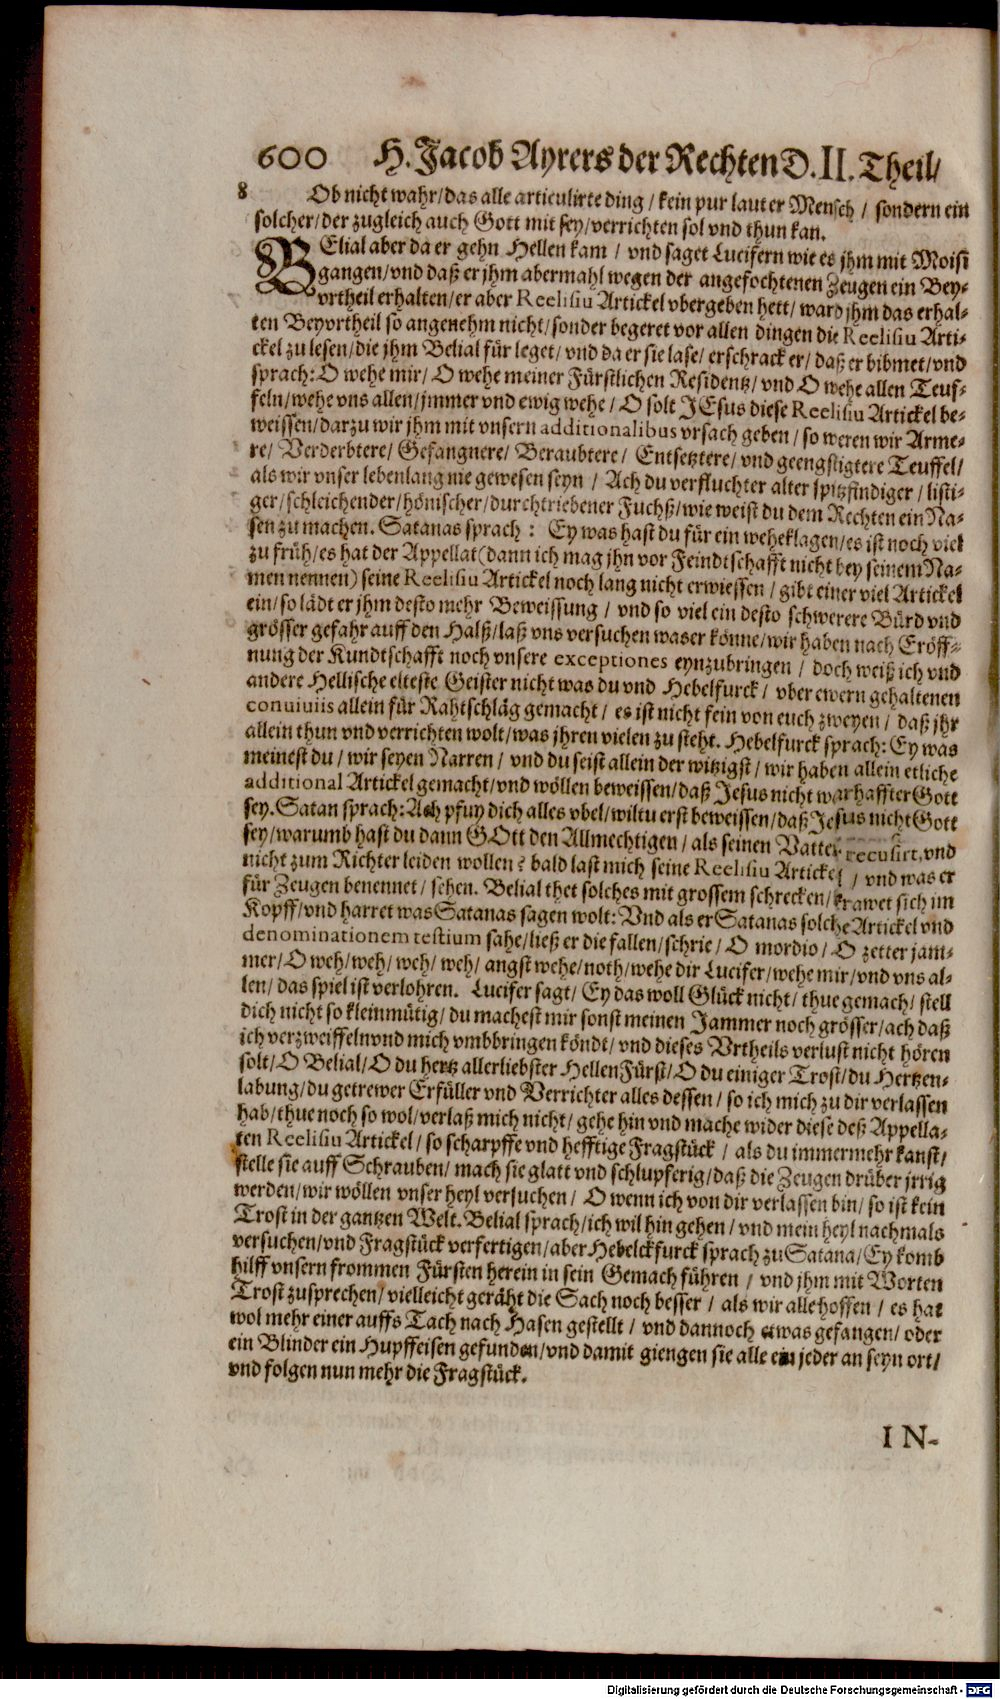 600 H. Jacob Ayrers der Rechten D. II. Theil/
8 Ob nicht wahr/das alle articulirte ding/kein pur lauter Mensch/sondern ein
solcher/der zugleich auch Gott mit sey/verrichten sol vnd thun kan.
BElial aber da er gehn Hellen kam/vnd saget Lucifern wie es jhm mit Moisi
gangen/vnd daß er jhm abermahl wegen der angefochtenen Zeugen ein Bey-
vrtheil erhalten/er aber Reelisiu Artickel vbergeben hett/ward jhm das erhal-
ten Beyvrtheil so angenehm nicht/sonder begeret vor allen dingen die Reelisiu Arti-
ckel zu lesen/die jhm Belial für leget/vnd da er sie lase/erschrack er/daß er bibmet/vnd
sprach: O wehe mir/O wehe meiner Fürstlichen Residentz/vnd O wehe allen Teuf-
feln/wehe vns allen/jmmer vnd ewig wehe/O solt JEsus diese Reelisiu Artickel be-
weissen/darzu wir jhm mit vnsern additionalibus vrsach geben/so weren wir Arme-
re/Verderbtere/Gefangnere/Beraubtere/Entsetztere/vnd geengstigtere Teuffel/
als wir vnser lebenlang nie gewesen seyn/Ach du verfluchter alter spitzfindiger/listi-
ger/schleichender/hönischer/durchtriebener Fuchß/wie weist du dem Rechten ein Na-
sen zu machen. Satanas sprach: Ey was hast du für ein weheklagen/es ist noch viel
zu früh/es hat der Appellat (dann ich mag jhn vor Feindtschafft nicht bey seinem Na-
men nennen) seine Reelisiu Artickel noch lang nicht erwiessen/gibt einer viel Artickel
ein/so lädt er jhm desto mehr Beweissung/vnd so viel ein desto schwerere Bürd vnd
grösser gefahr auff den Halß/laß vns versuchen was er könne/wir haben nach Eröff-
nung der Kundtschafft noch vnsere exceptiones eynzubringen/doch weiß ich vnd
andere Hellische elteste Geister nicht was du vnd Hebelfurck/vber ewern gehaltenen
conuiuiis allein für Rahtschläg gemacht/es ist nicht fein von euch zweyen/daß jhr
allein thun vnd verrichten wolt/was jhren vielen zu steht. Hebelfurck sprach: Ey was
meinest du/wir seyen Narren/vnd du seist allein der witzigst/wir haben allein etliche
additional Artickel gemacht/vnd wöllen beweissen/daß Jesus nicht warhaffter Gott
sey. Satan sprach: Ach pfuy dich alles vbel/wiltu erst beweissen/daß Jesus nicht Gott
sey/warumb hast du dann GOtt den Allmechtigen/als seinen Vatter recusirt, vnd
nicht zum Richter leiden wollen? bald last mich seine Reelisiu Artickel/vnd was er
für Zeugen benennet/sehen. Belial thet solches mit grossem schrecken/krawet sich im
Kopff/vnd harret was Satanas sagen wolt: Vnd als er Satanas solche Artickel vnd
denominationem testium sahe/ließ er die fallen/schrie/O mordio/O zetter jam-
mer/O weh/weh/weh/weh/angst wehe/noth/wehe dir Lucifer/wehe mir/vnd vns al-
len/das spiel ist verlohren. Lucifer sagt/Ey das woll Glück nicht/thue gemach/stell
dich nicht so kleinmütig/du machest mir sonst meinen Jammer noch grösser/ach daß
ich verzweiffeln vnd mich vmbbringen köndt/vnd dieses Vrtheils verlust nicht hören
solt/O Belial/O du hertz allerliebster HellenFürst/O du einiger Trost/du Hertzen-
labung/du getrewer Erfüller vnd Verrichter alles dessen/so ich mich zu dir verlassen
hab/thue noch so wol/verlaß mich nicht/gehe hin vnd mache wider diese deß Appella-
ten Reelisiu Artickel/so scharpffe vnd hefftige Fragstück/als du immermehr kanst/
stelle sie auff Schrauben/mach sie glatt vnd schlupferig/daß die Zeugen drüber jrrig
werden/wir wöllen vnser heyl versuchen/O wenn ich von dir verlassen bin/so ist kein
Trost in der gantzen Welt. Belial sprach/ich wil hin gehen/vnd mein heyl nachmals
versuchen/vnd Fragstück verfertigen/aber Hebelckfurck sprach zu Satana/Ey komb
hilff vnsern frommen Fürsten herein in sein Gemach führen/vnd jhm mit Worten
Trost zusprechen/vielleicht geräht die Sach noch besser/als wir alle hoffen/es hat
wol mehr einer auffs Tach nach Hasen gestellt/vnd dannoch etwas gefangen/oder
ein Blinder ein Hupffeisen gefunden/vnd damit giengen sie alle ein jeder an seyn ort/
vnd folgen nun mehr die Fragstück.
IN-
Digitalisierung gefördert durch die Deutsche Forschungsgemeinschaft - DFG